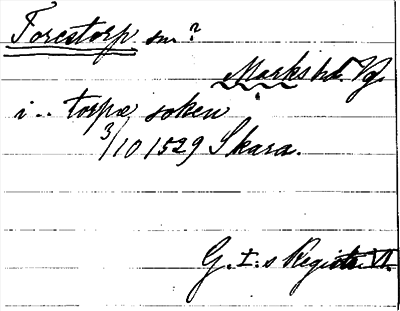 Forestorp sn?
Marks hd. Vg.
i.. torpæ soken
3/10 1529 Skara.
G. I:s Registr. VI.